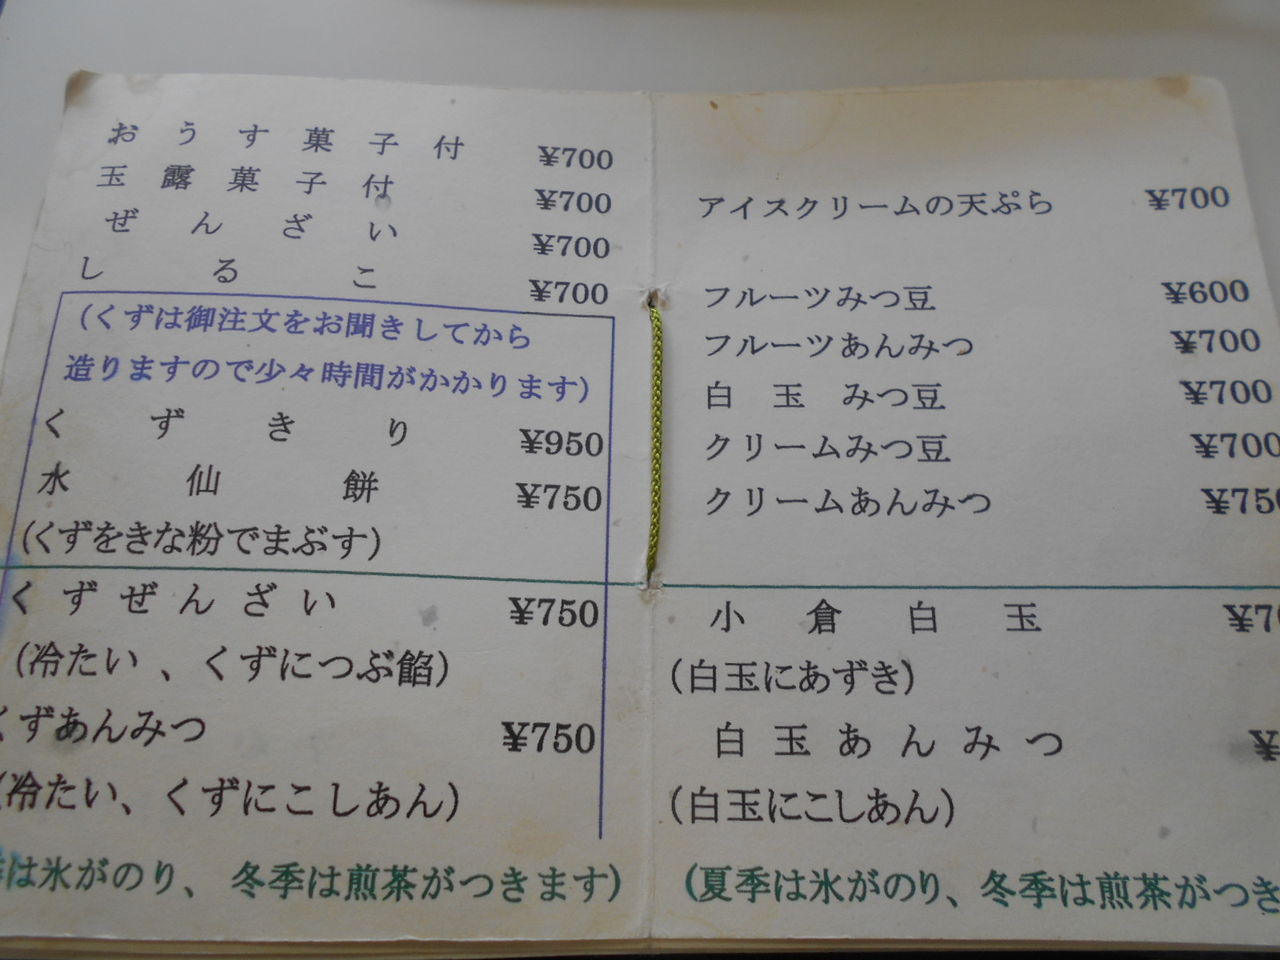 おうす菓子付 ¥700
玉露菓子付 ¥700
ぜんざい ¥700
しるこ ¥700
(くずは御注文をお聞きしてから
造りますので少々時間がかかります)
くずきり ¥950
水仙餅 ¥750
(くずをきな粉でまぶす)
くずぜんざい ¥750
(冷たい、くずにつぶ餡)
くずあんみつ ¥750
(冷たい、くずにこしあん)
季は氷がのり、冬季は煎茶がつきます)
アイスクリームの天ぷら ¥700
フルーツみつ豆 ¥600
フルーツあんみつ ¥700
白玉みつ豆 ¥700
クリームみつ豆 ¥700
クリームあんみつ ¥750
小倉白玉
(白玉にあずき)
白玉あんみつ
(白玉にこしあん)
(夏季は氷がのり、冬季は煎茶がつき